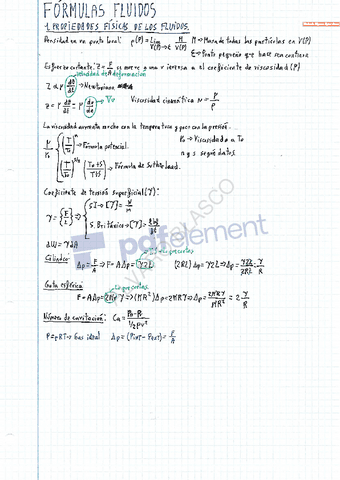 FÓRMULAS FLUIDOS
1. PROPIEDADES FÍSICAS DE LOS FLUIDOS.
Densidad en un punto local: ρ(P) = Lim V(P)→ε M/V(P) M → Masa de todas las partículas en V(P)
ε → punto pequeño que hace sea continuo
Esfuerzo cortante: Z = F/A es mayor a una inversa a el coeficiente de viscosidad (μ)
velocidad de deformación
Z ∝ μ dθ/dt → Newtoniano
Z = μ dθ/dt = μ du/dy → Vo Viscosidad cinemática ν = μ/ρ
La viscosidad aumenta mucho con la temperatura y poco con la presión.
μ/μo (T/To)^n → Fórmula potencial. μo → Viscosidad a To
(T/To)^3/2 (To+S/T+S) → Fórmula de Sutherland. n y S según datos.
Coeficiente de tensión superficial (γ):
γ = {F/L} ⇒ SI → [γ] = N/m
S. Británico → [γ]
dW = γ dA
pdfelement
Cilindro: Δp = F/A ⇒ F = A Δp = γ2L (2RL) Δp = γ2L ⇒ Δp = γ2L/2RL = γ/R
Gota esférica
F = A Δp = 2πR γ ⇒ (πR²) Δp = 2πRγ ⇒ Δp = 2πRγ/πR² = 2 γ/R
Número de cavitación: Ca = Pa-Pv / ½ρv²
P = ρRT → Gas ideal Δp = (Pint - Pext) = F/A